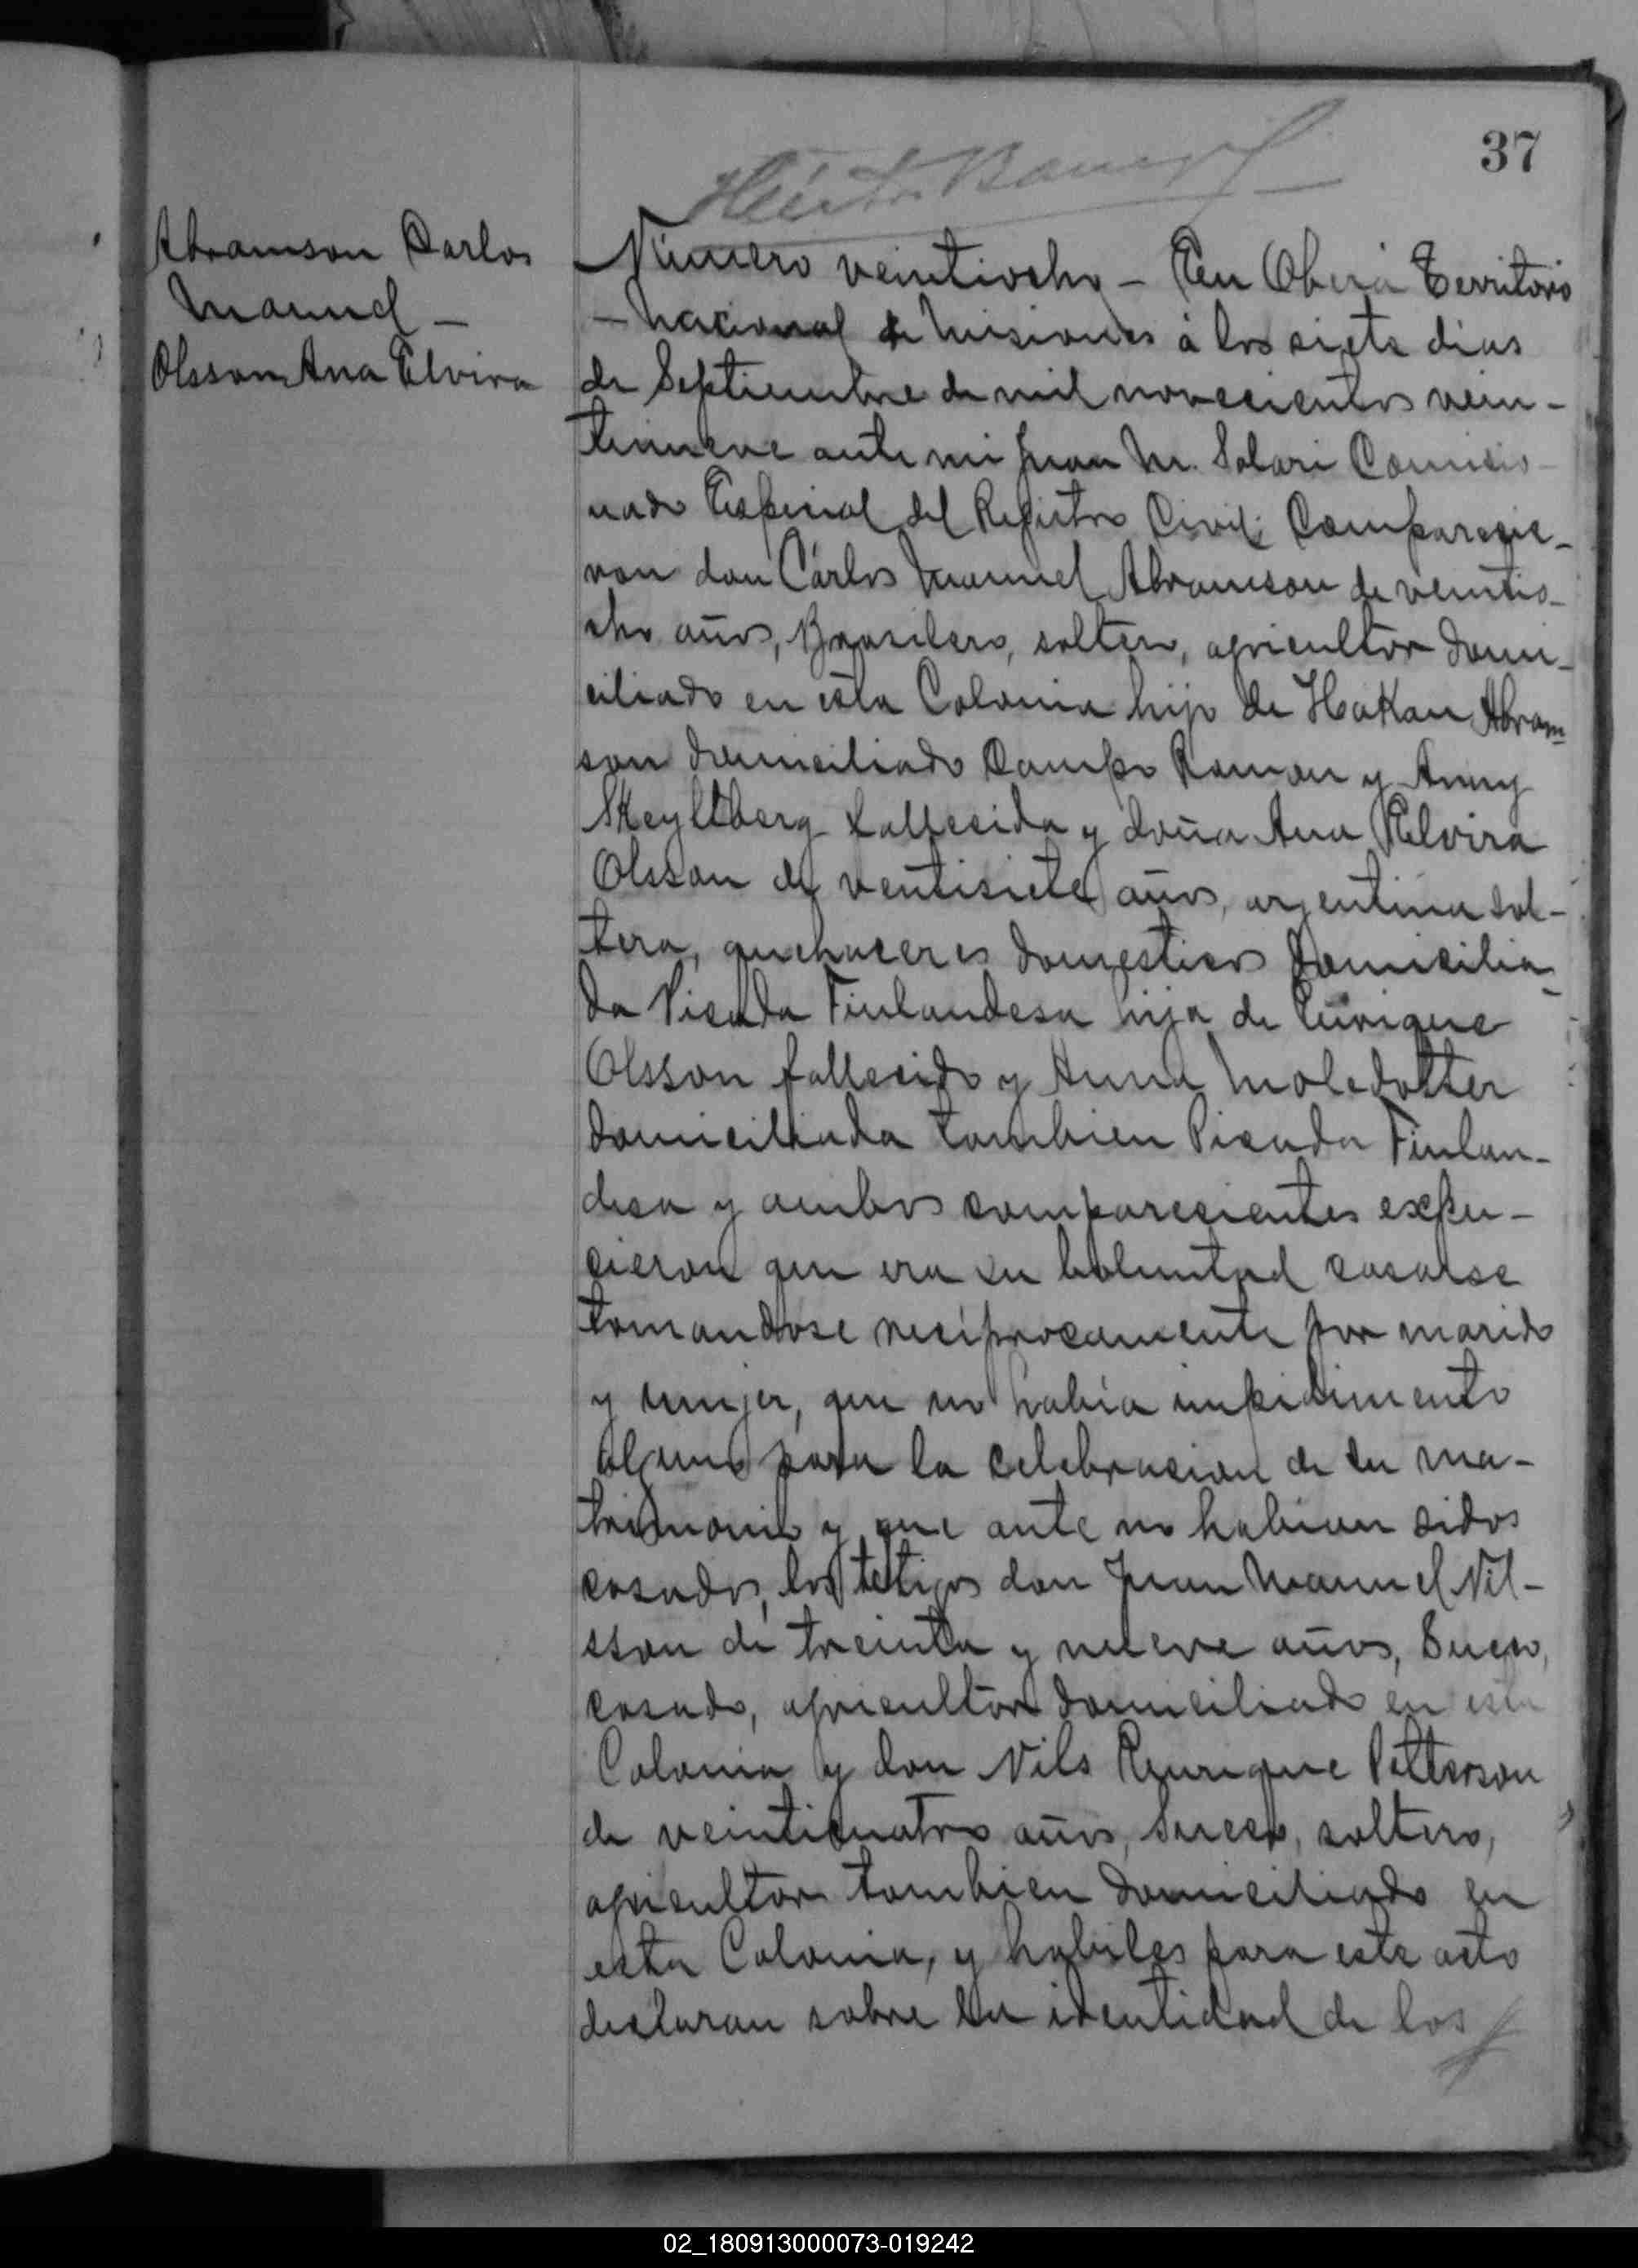 37
Abramson Carlos
Manuel —
Olsson Ana Elvira
Número veintiocho – En Oberá Territorio
– Nacional de Misiones á los siete dias
de Septiembre de mil novecientos vein-
tinueve ante mi Juan M. Solari Comisio-
nado Especial del Registro Civil; Comparecie-
ron don Cárlos Manuel Abramson de veintio-
cho años, Brasilero, soltero, agricultor domi-
ciliado en esta Colonia hijo de Hakan Abram-
son domiciliado Campo Ramon y Anny
Skeyltberg fallecida y doña Ana Elvira
Olsson de ventisiete años, argentina sol-
tera, quehaceres domesticos domicilia-
da Picada Finlandesa hija de Enrique
Olsson fallecido y Anna Moledotter
domiciliada tambien Picada Finlan-
desa y ambos comparecientes expu-
cieron que era su boluntad casarse
tomandose reciprocamente por marido
y mujer, que no habia impidimento
alguno para la celebracion de su ma-
trimonio y que ante no habian sidos
casados, los tetigos don Juan Manuel Nil-
sson de treinta y nueve años, Sueco,
casado, agricultor domiciliado en esta
Colonia y don Nils Enrique Petterson
de veinticuatro años, Sueco, soltero,
agricultor tambien domiciliado en
esta Colonia, y habiles para este acto
declaran sobre la identidad de los
02_180913000073-019242